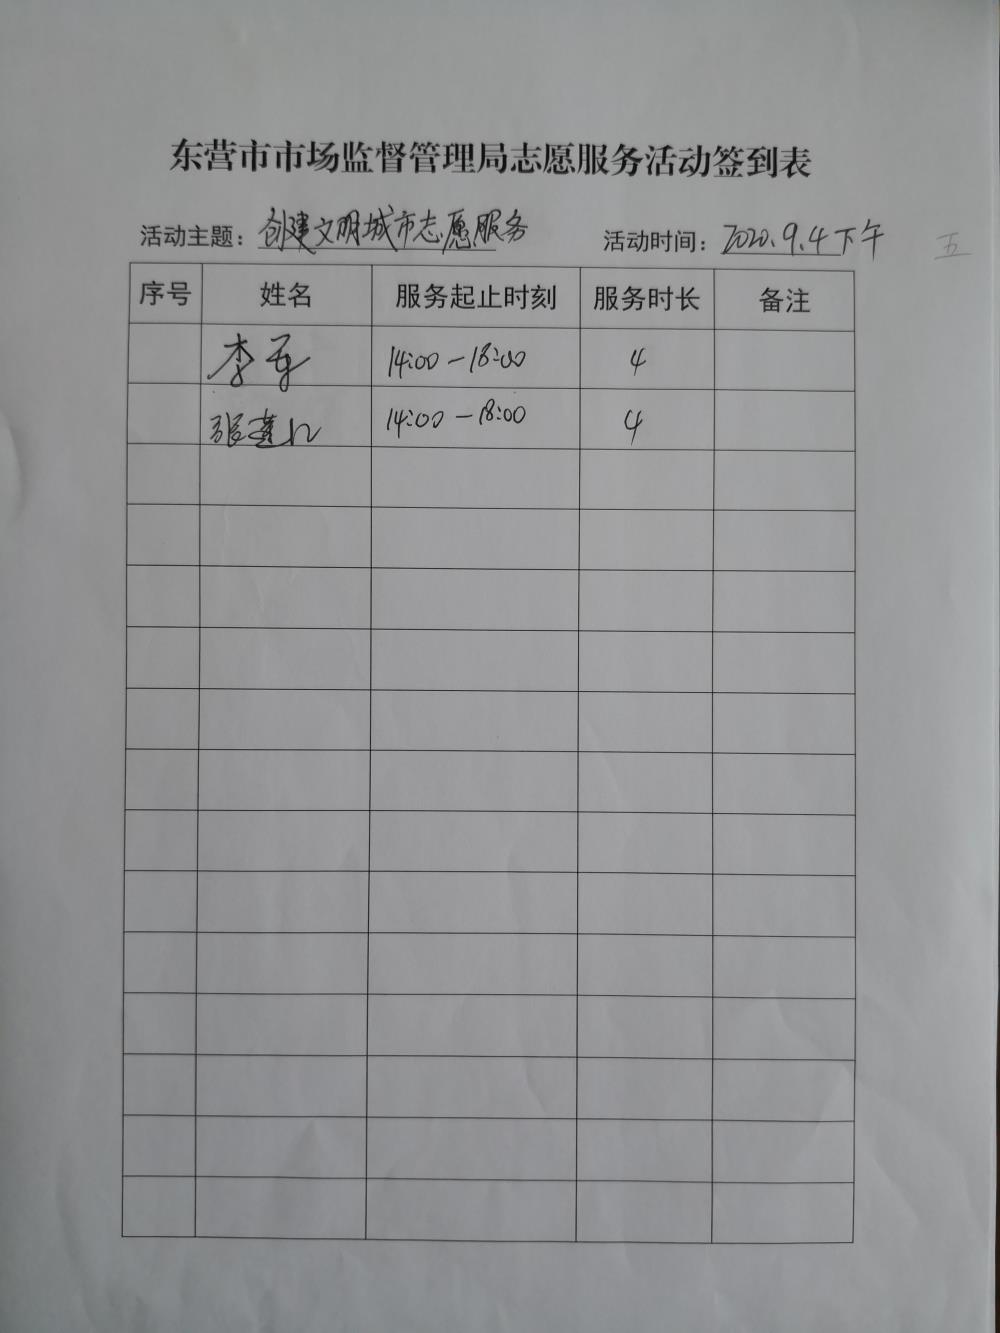 东营市市场监督管理局志愿服务活动签到表
活动主题：创建文明城市志愿服务 活动时间：2020.9.4下午 五
序号 姓名 服务起止时刻 服务时长 备注
李 14:00-18:00 4
张 14:00-18:00 4